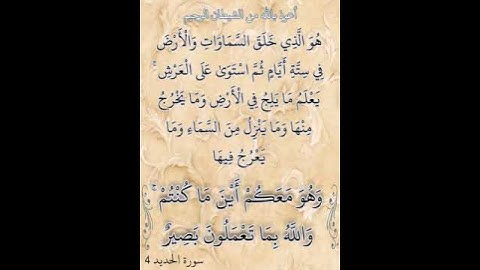 أعوذ بالله من الشيطان الرجيم
هُوَ الَّذِي خَلَقَ السَّمَاوَاتِ وَالْأَرْضَ
فِي سِتَّةِ أَيَّامٍ ثُمَّ اسْتَوَىٰ عَلَى الْعَرْشِ ۚ
يَعْلَمُ مَا يَلِجُ فِي الْأَرْضِ وَمَا يَخْرُجُ
مِنْهَا وَمَا يَنْزِلُ مِنَ السَّمَاءِ وَمَا
يَعْرُجُ فِيهَا
وَهُوَ مَعَكُمْ أَيْنَ مَا كُنْتُمْ ۚ
وَاللَّهُ بِمَا تَعْمَلُونَ بَصِيرٌ
سورة الحديد 4